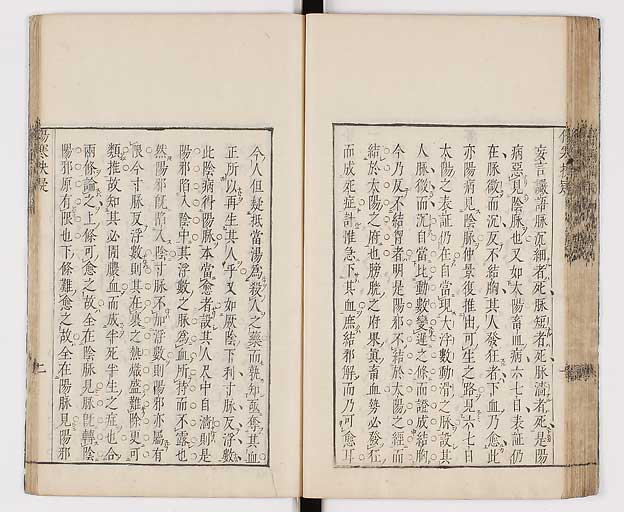 妄言譫語脉沉細者死脉短者死脉濇者死是陽
病惡見陰脉也又如太陽畜血病六七日表証仍
在脉微而沉反不結胸其人發狂者下血乃愈此
亦陽病見陰脉仲景復推出可生之路見六七日
太陽之表証仍在自當現大浮數動滑之脉設其
人脉微而沉自當比動數變遲之條而證成結胸
今乃反不結胷者明是陽邪不結於太陽之經而
結於太陽之府也膀胱之府果眞畜血勢必發狂
而成死症計惟急下其血庶結邪解而乃可愈耳
今人但疑抵當湯爲殺人之藥而孰知亟奪其血
正所以再生其人乎又如厥陰下利寸脉反浮數
此陰病得陽脉本當愈者設其人尺中自濇則是
陽邪陷入陰中其浮數之脉爲血所持而不露也
然陽邪旣陷入陰寸脉不加浮數則陽邪亦屬有
限今寸脉反浮數則其在裏之熱熾盛難除更可
類推故知其必圊膿血而成半死半生之症也合
兩條論之上條可愈之故全在陰脉見脉旣轉陰
陽邪原有限也下條難愈之故全在陽脉見陽邪
傷寒抉疑
二